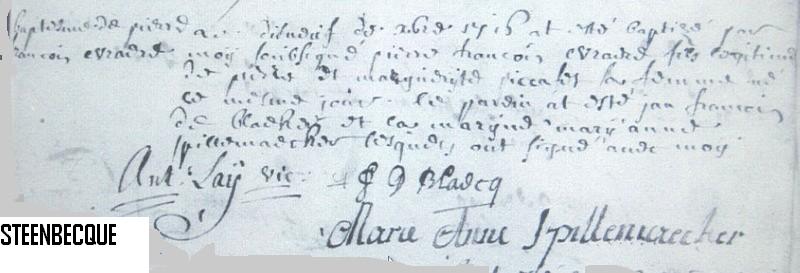 baptesme de pierre
francois evraere
a disneuf de xbre 1716 at esté baptizé par
moy soubsigné pierre francois evraere fils legitime
de pierre et marguerite piccaet sa femme né
ce mesme jour. le parin at esté jan francois
de blacker et la marine mary anne
spillemaecker lesquels ont signé avec moy
Ant. Laÿ vic.
J D Blaecq
Marie Anne Spillemaecker
STEENBECQUE